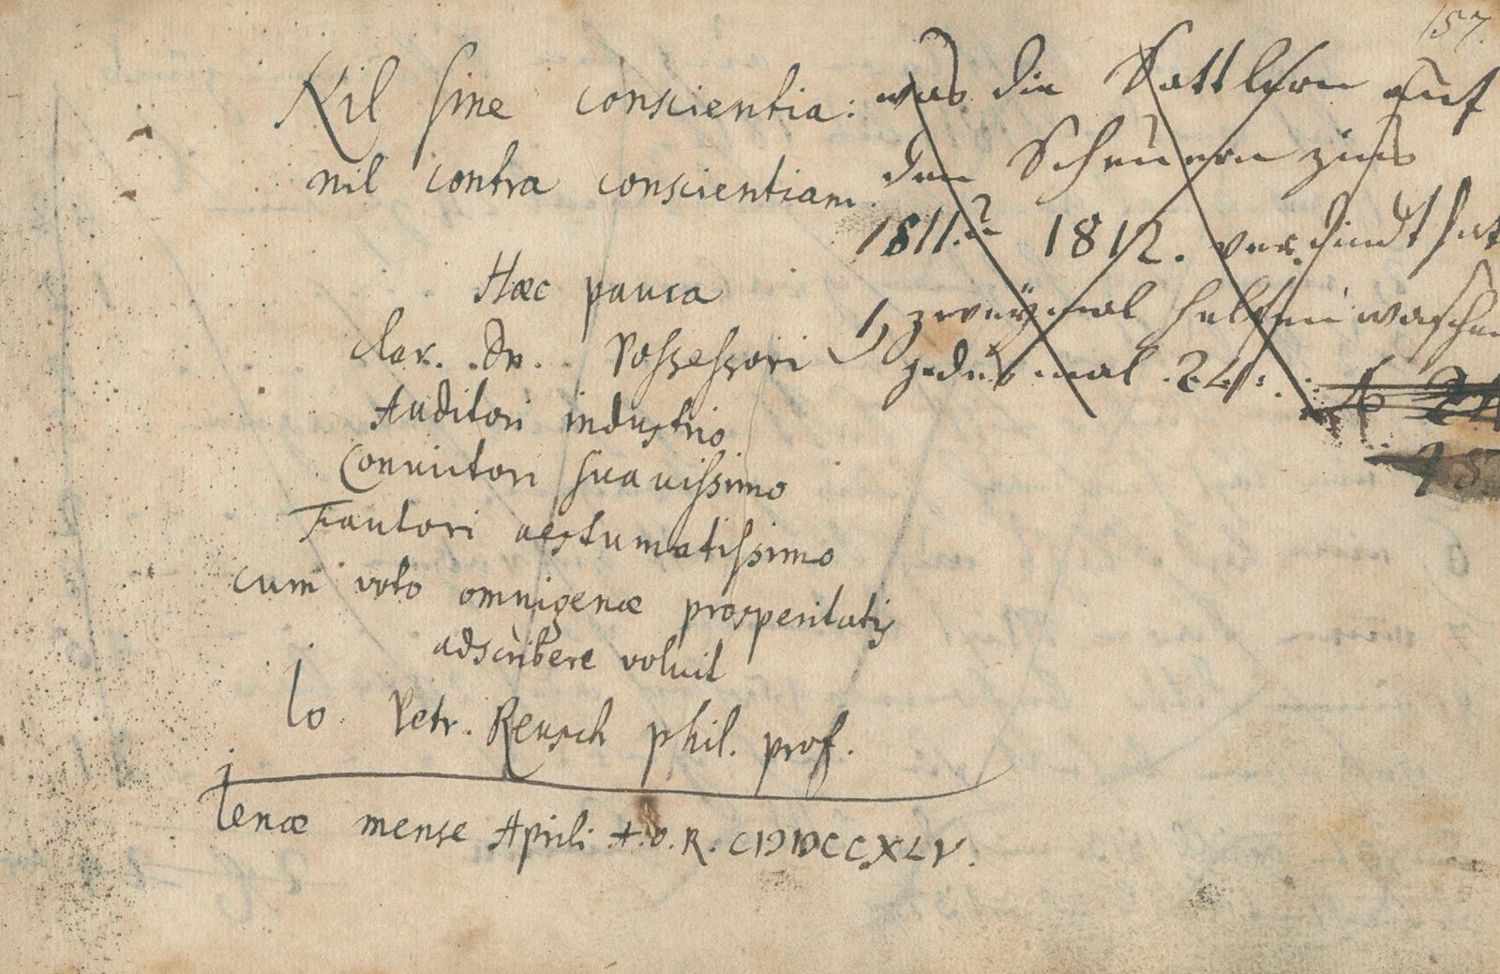 157.
Nil sine conscientia:
nil contra conscientiam.
Haec pauca
clar. Dn. Possessori
Auditori industrio
Convictori suavissimo
Fautori aestumatissimo
cum voto omnigenae prosperitatis
adscribere voluit
Io. Petr. Reusch phil. prof.
Ienae mense Aprili A. O. R. CIƆIƆCCXLV.
was die Sattlern auf
den Scheuern zins
1811. & 1812. verdindt hat
1, zweÿmal helfen waschen
jedes mal 24